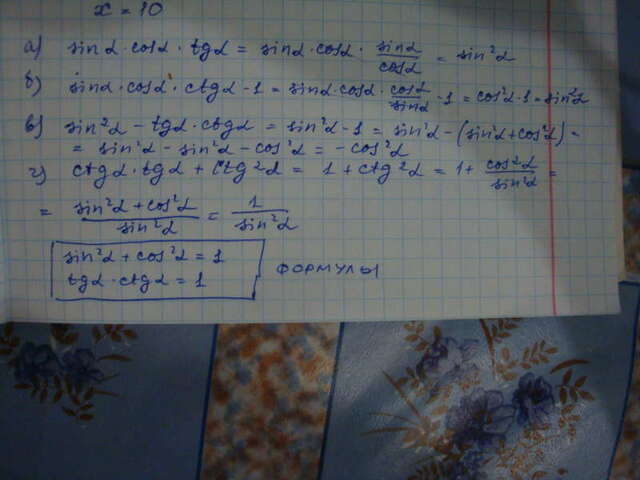 x = 10
а) sinα·cosα·tgα = sinα·cosα·sinα/cosα = sin²α
б) sinα·cosα·ctgα-1 = sinα·cosα·cosα/sinα-1 = cos²α-1 = sin²α
в) sin²α - tgα·ctgα = sin²α-1 = sin²α - (sin²α+cos²α) =
= sin²α - sin²α - cos²α = -cos²α
г) ctgα·tgα + ctg²α = 1 + ctg²α = 1 + cos²α/sin²α =
= sin²α + cos²α/sin²α = 1/sin²α
sin²α + cos²α = 1
tgα·ctgα = 1
ФОРМУЛЫ